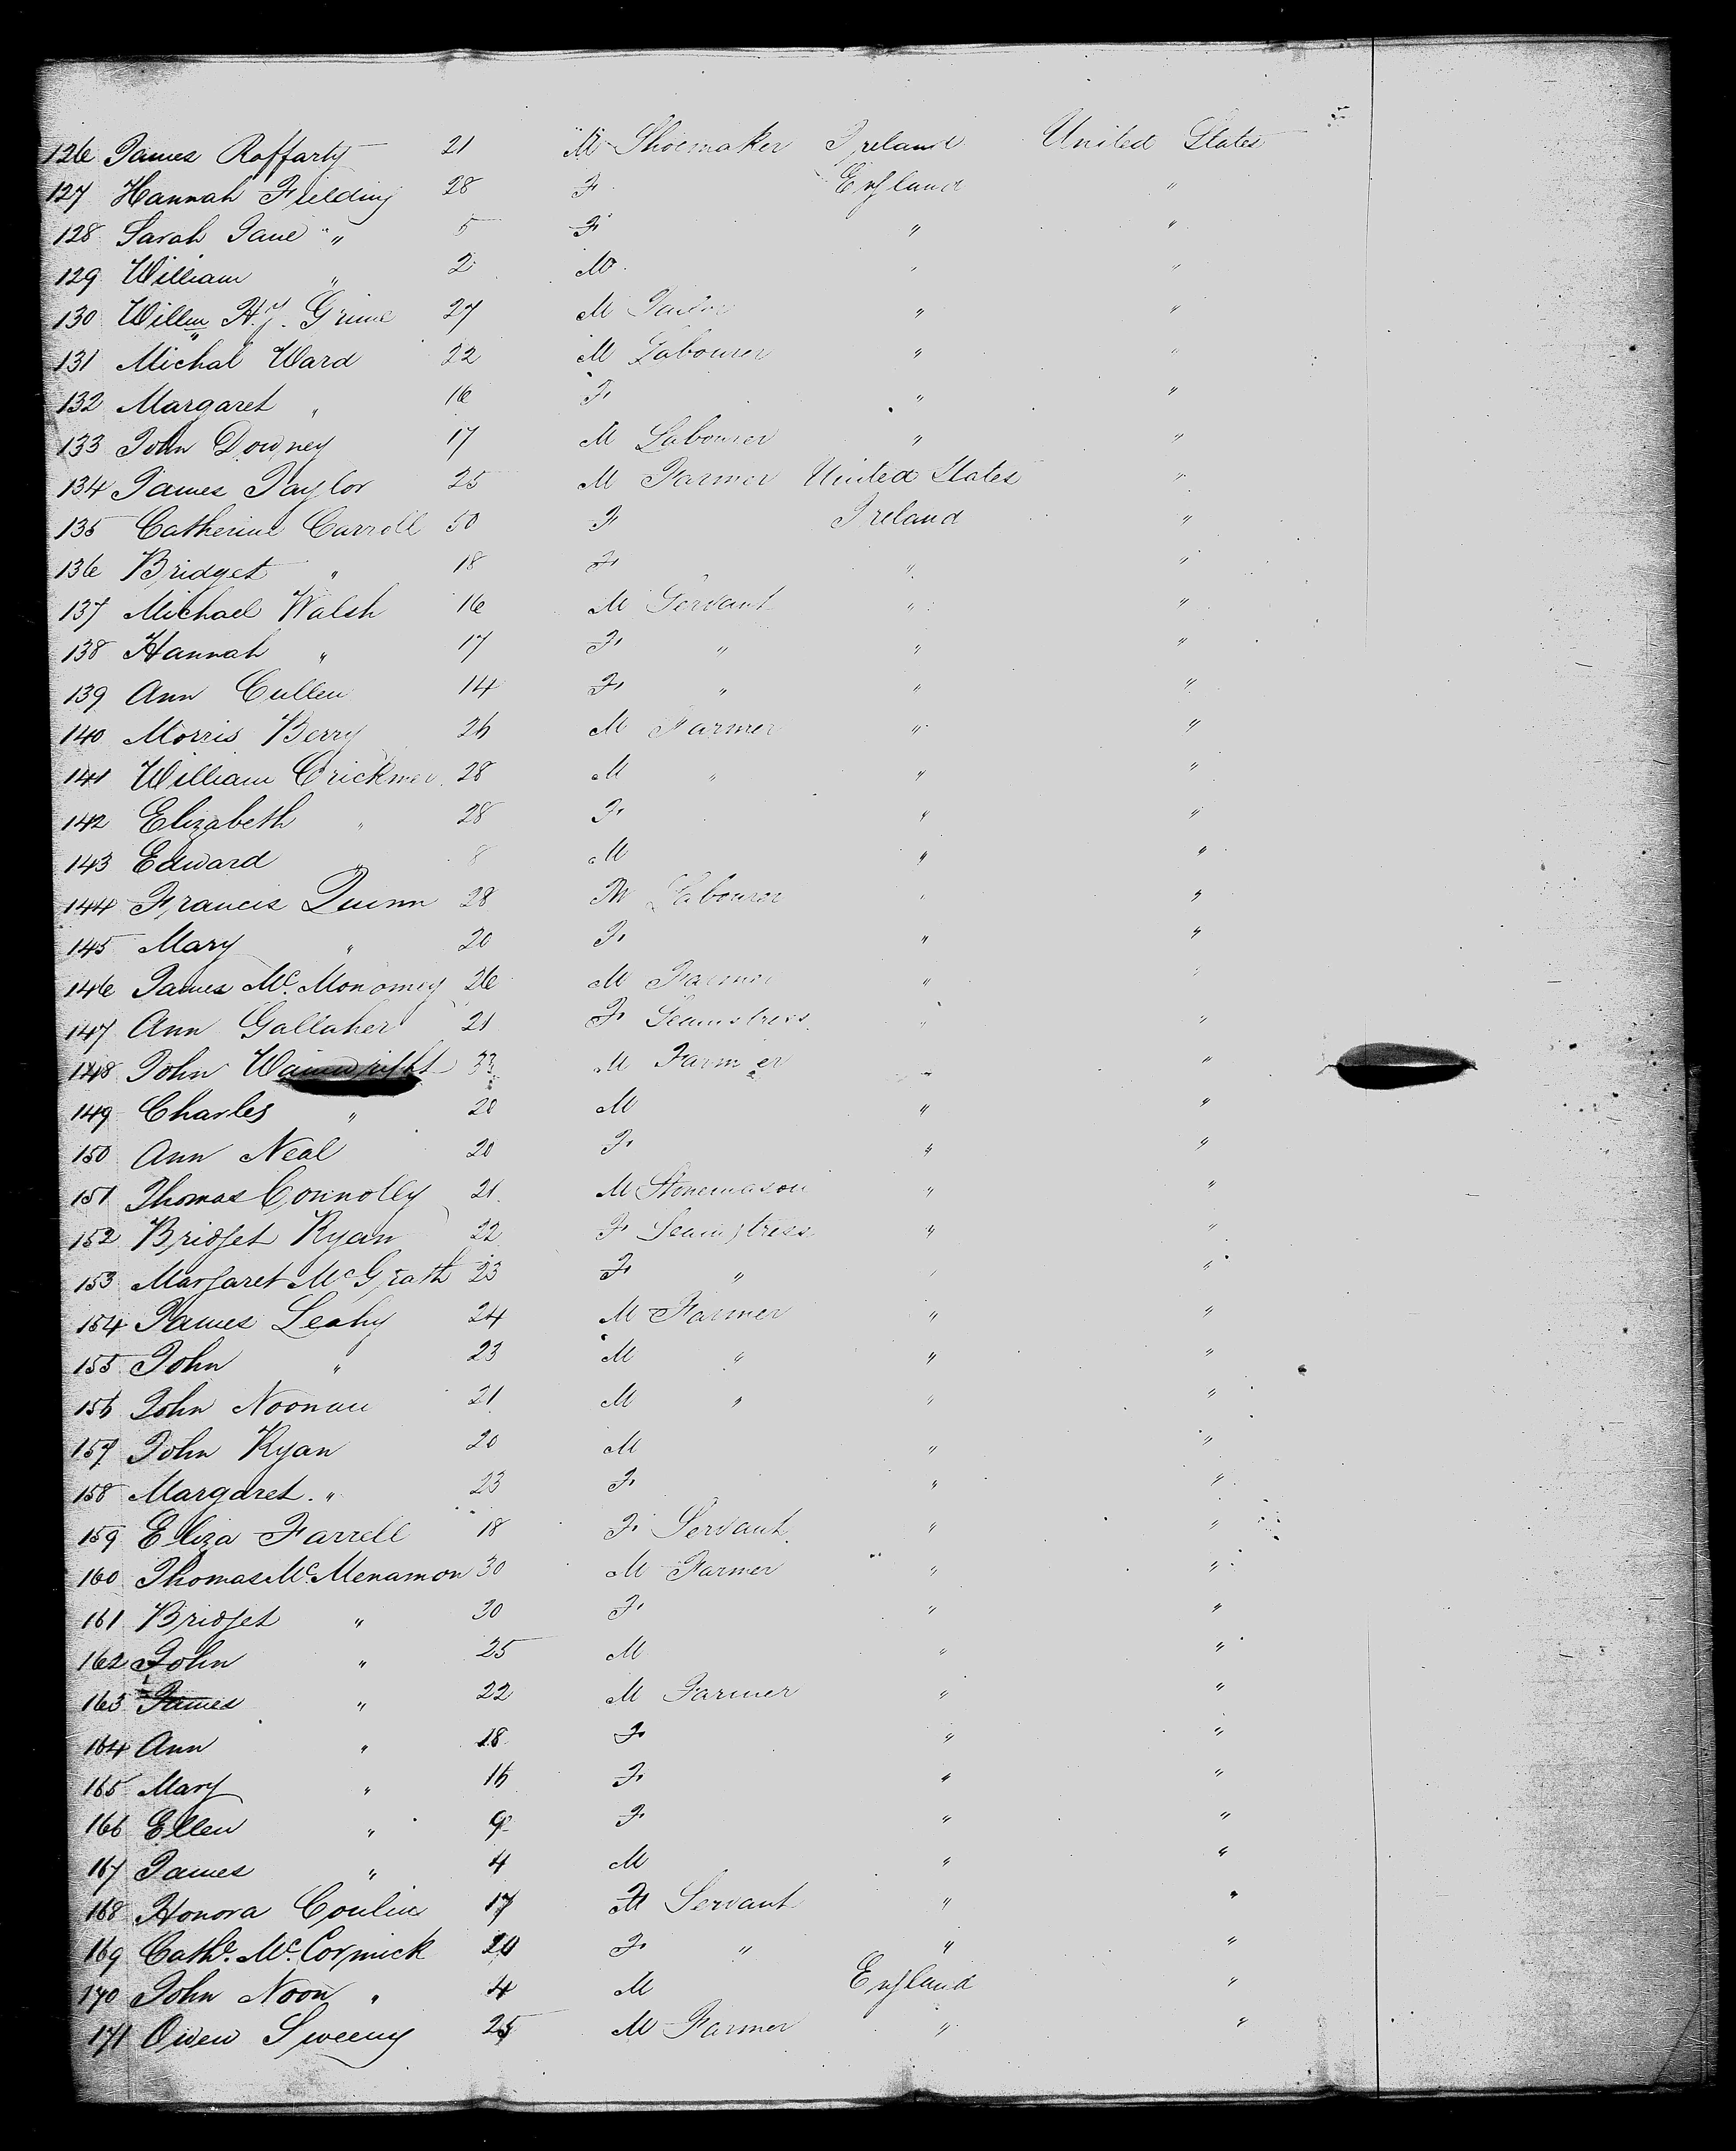 126 James Raffarty 21 M Shoemaker Ireland United States
127 Hannah Fielding 28 F England "
128 Sarah Jane " 5 F " "
129 William " 2 M " "
130 Willm Hy. Grime 27 M Tailor " "
131 Michal Ward 22 M Labourer " "
132 Margaret " 16 F " "
133 John Downey 17 M Labourer " "
134 James Taylor 25 M Farmer United States "
135 Catherine Carroll 50 F Ireland "
136 Bridget " 18 F " "
137 Michael Walsh 16 M Servant " "
138 Hannah " 17 F " " "
139 Ann Cullen 14 F " " "
140 Morris Berry 26 M Farmer " "
141 William Crickmer 28 M " " "
142 Elizabeth " 28 F " "
143 Edward " 8 M " "
144 Francis Quinn 28 M Labourer " "
145 Mary " 20 F " "
146 James Mc. Monomey 26 M Farmer " "
147 Ann Gallaher 21 F Seamstress " "
148 John Wainwright 33 M Farmer " "
149 Charles " 20 M " "
150 Ann Neal 20 F " "
151 Thomas Connolly 21 M Stonemason " "
152 Bridget Ryan 22 F Seamstress " "
153 Margaret McGrath 23 F " " "
154 James Leahy 24 M Farmer " "
155 John " 23 M " " "
156 John Noonan 21 M " " "
157 John Ryan 20 M " "
158 Margaret " 23 F " "
159 Eliza Farrell 18 F Servant " "
160 Thomas Mc. Menamon 30 M Farmer " "
161 Bridget " 30 F " "
162 John " 25 M " "
163 James " 22 M Farmer " "
164 Ann " 18 F " "
165 Mary " 16 F " "
166 Ellen " 9 F " "
167 James " 4 M " "
168 Honora Conlin 17 F Servant " "
169 Cathe. Mc. Cormick 20 F " " "
170 John Noon " 4 M England "
171 Owen Sweeny 25 M Farmer " "